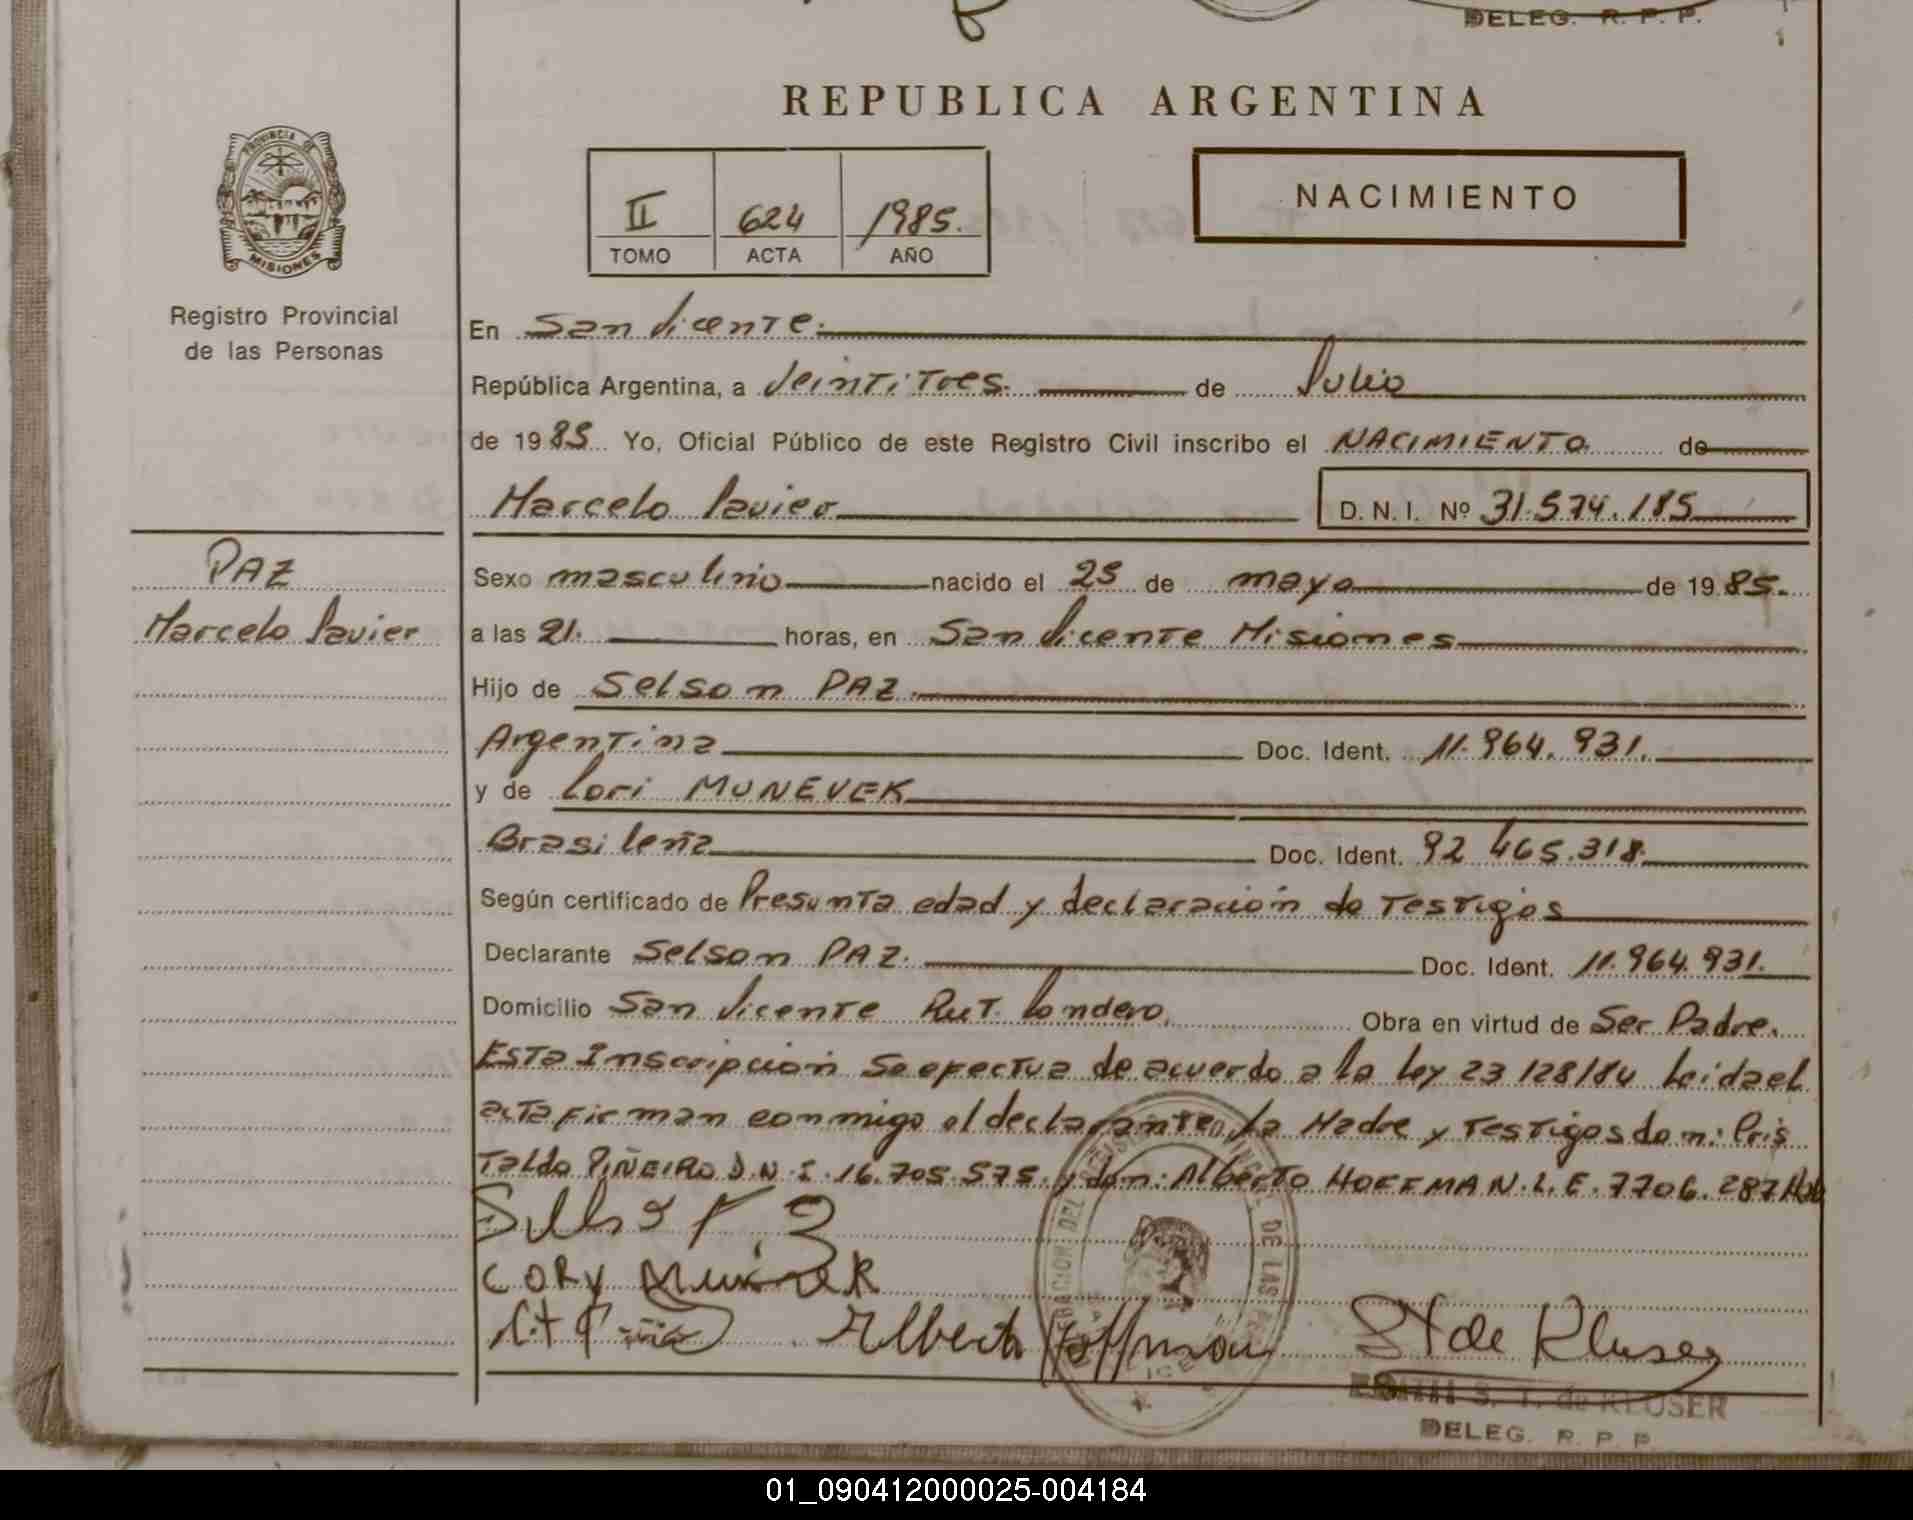 DELEG. R. P. P.
REPUBLICA ARGENTINA
PROVINCIA DE
MISIONES
II 624 1985.
TOMO ACTA AÑO
NACIMIENTO
Registro Provincial
de las Personas
En San Vicente.
República Argentina, a Veintitres. de Julio
de 1985 Yo, Oficial Público de este Registro Civil inscribo el NACIMIENTO de
Marcelo Javier D. N. I. Nº 31.574.185
PAZ
Marcelo Javier
Sexo masculino nacido el 25 de mayo de 1985.
a las 21. horas, en San Vicente Misiones
Hijo de Selson PAZ.
Argentina Doc. Ident. 11.964.931.
y de Lori MUNEVEK
Brasileña Doc. Ident. 92 465.318.
Según certificado de Presunta edad y declaración de Testigos
Declarante Selson PAZ. Doc. Ident. 11.964.931.
Domicilio San Vicente Rut. Londero. Obra en virtud de Ser Padre.
Esta Inscripción Se efectua de acuerdo a la ley 23 128/84 Leida el
acta firman conmigo el declarante, La Madre y Testigos don: Cris
Taldo PIÑEIRO D.N.I. 16.705.575. y don: Alberto HOFFMAN. L.E. 7706.287
CORY
Alberto Hoffman St de Kluser
EDITH S. T. de KLUSER
DELEG. R. P. P.
01_090412000025-004184